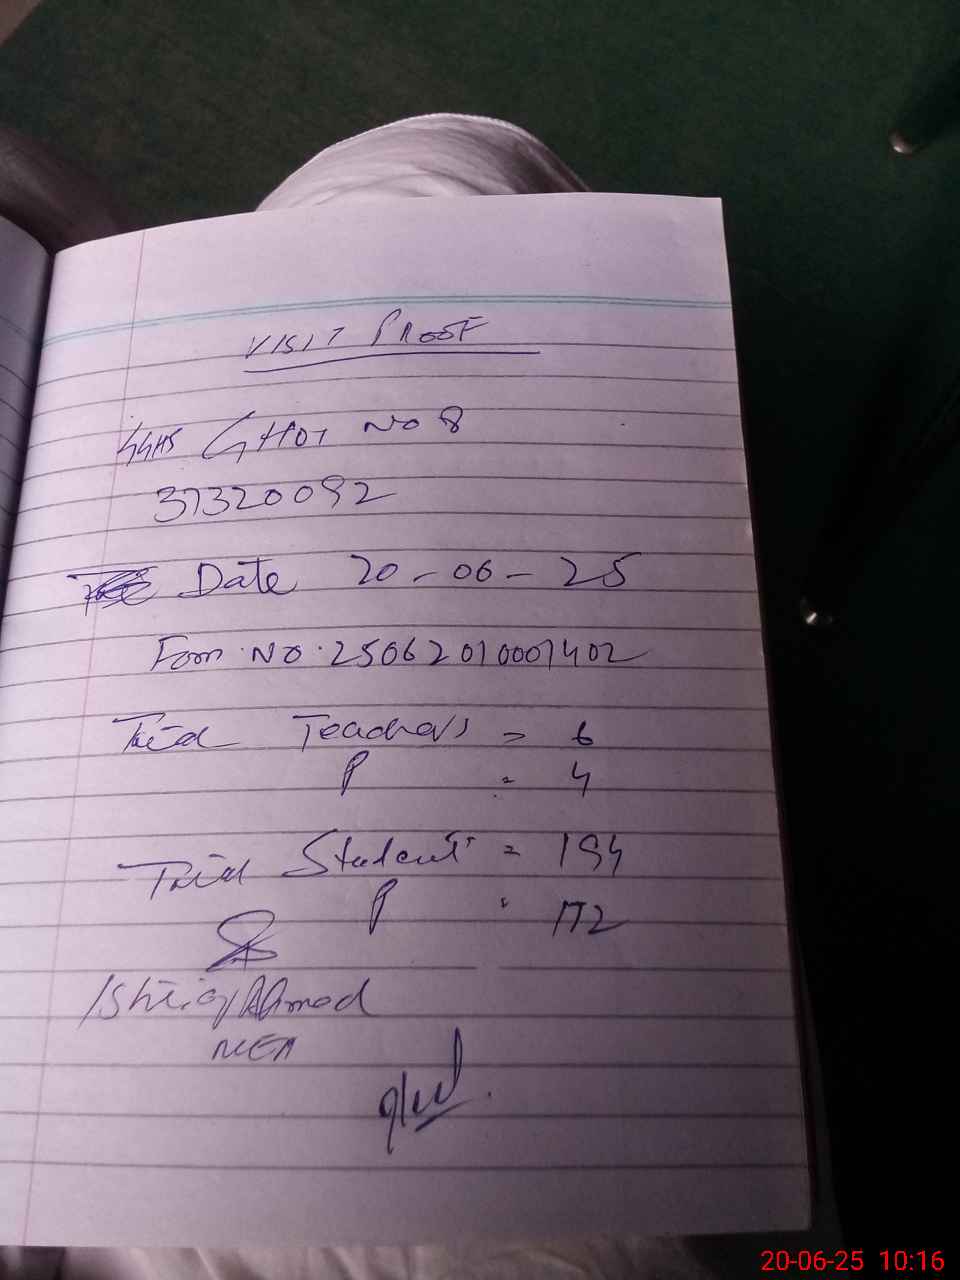 VISIT PROOF
GGHS GHOT NO 8
37320092
Date 20-06-25
Form No. 25062010001402
Total Teachers = 6
P = 4
Total Students = 194
P = 172
Ishtiaq Ahmad
MEA
20-06-25 10:16